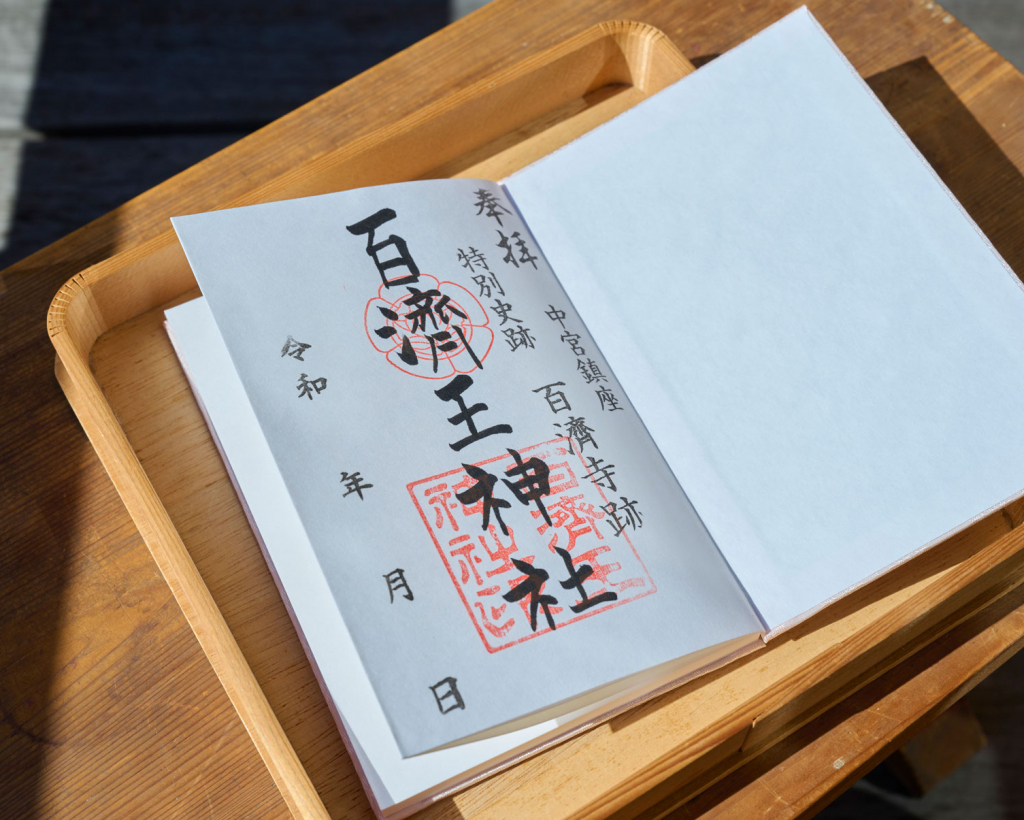 奉拝
中宮鎮座
特別史跡
百濟寺跡
百濟王神社
令和 年 月 日
百濟王
神社之印